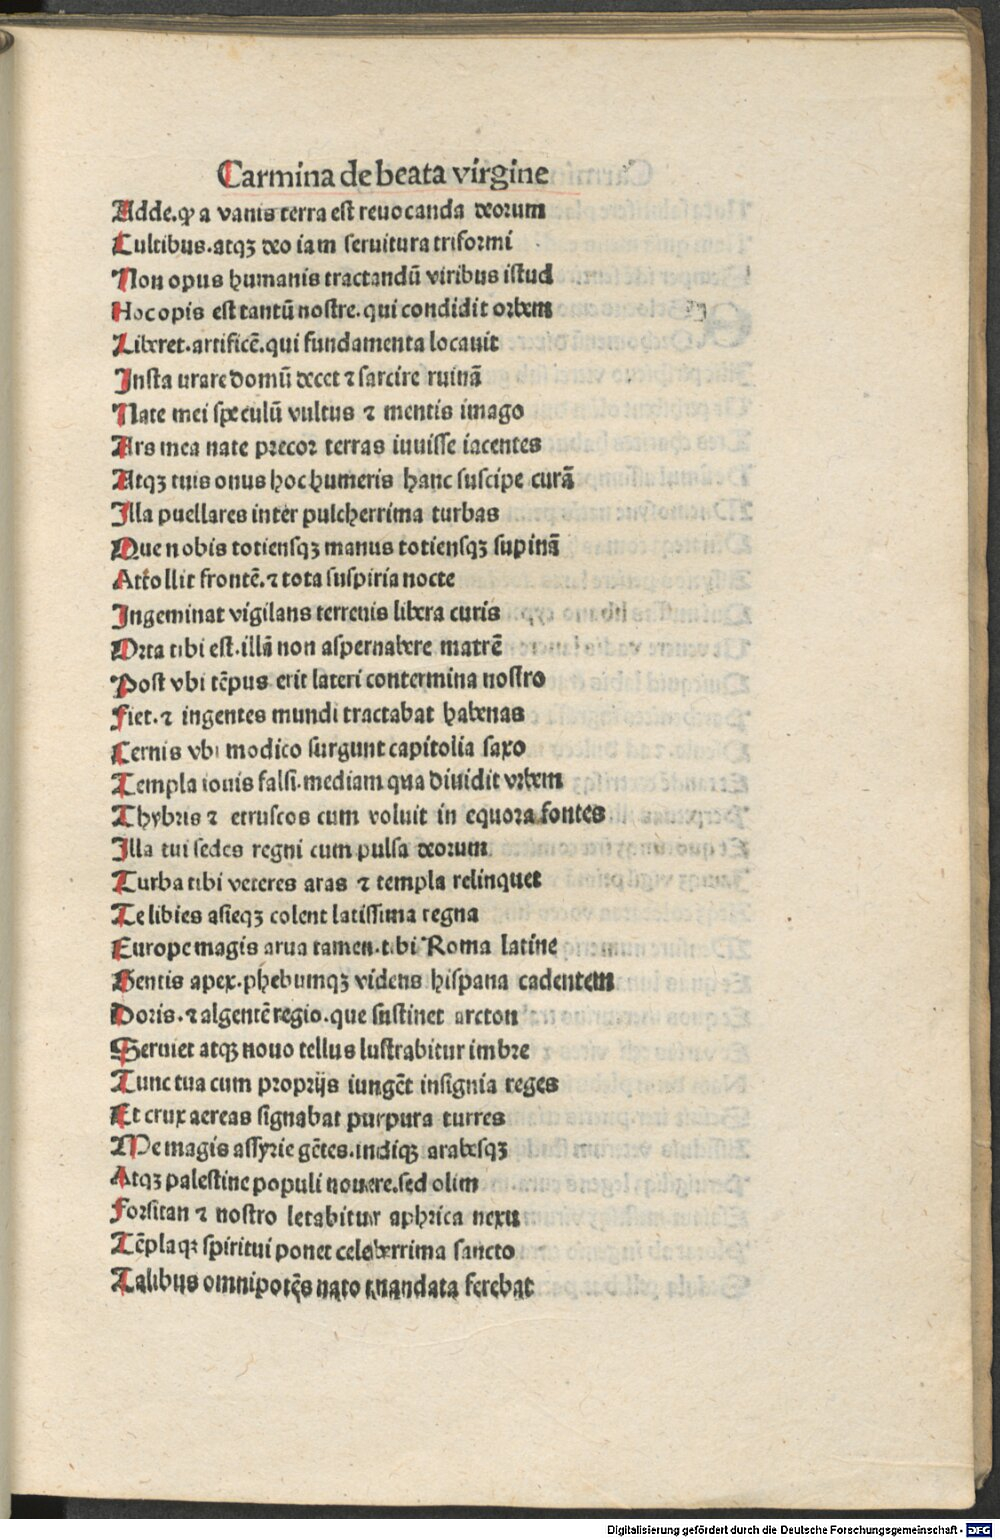 Carmina de beata virgine
Adde. ꝙ a vanis terra est reuocanda deorum
Cultibus. atqꝫ deo iam seruitura triformi
Non opus humanis tractandū viribus istud
Hoc opis est tantū nostre. qui condidit orbem
Liberet. artificē. qui fundamenta locauit
Insta urare domū decet ⁊ sarcire ruinā
Nate mei speculū vultus ⁊ mentis imago
Ars mea nate precor terras iuuisse iacentes
Atqꝫ tuis onus hoc humeris hanc suscipe curā
Illa puellares inter pulcherrima turbas
Que nobis totiensqꝫ manus totiensqꝫ supinā
Attollit frontē. ⁊ tota suspiria nocte
Ingeminat vigilans terrenis libera curis
Orta tibi est. illā non aspernabere matrē
Post vbi tēpus erit lateri contermina nostro
Fiet. ⁊ ingentes mundi tractabat habenas
Cernis vbi modico surgunt capitolia saxo
Templa iouis falsi. mediam qua diuidit vrbem
Thybris ⁊ etruscos cum voluit in equora fontes
Illa tui sedes regni cum pulsa deorum
Turba tibi veteres aras ⁊ templa relinquet
Te libies asieqꝫ colent latissima regna
Europe magis arua tamen. tibi Roma latine
Gentis apex. phebumqꝫ videns hispana cadentem
Doris. ⁊ algentē regio. que sustinet arcton
Seruiet atqꝫ nouo tellus lustrabitur imbre
Tunc tua cum proprijs iungēt insignia reges
Et crux aereas signabat purpura turres
Me magis assyrie gētes. indiqꝫ arabesqꝫ
Atqꝫ palestine populi nouere. sed olim
Forsitan ⁊ nostro letabitur aphrica nexu
Tēplaqꝫ spiritui ponet celeberrima sancto
Talibus omnipotēs nato mandata ferebat
Digitalisierung gefördert durch die Deutsche Forschungsgemeinschaft - DFG